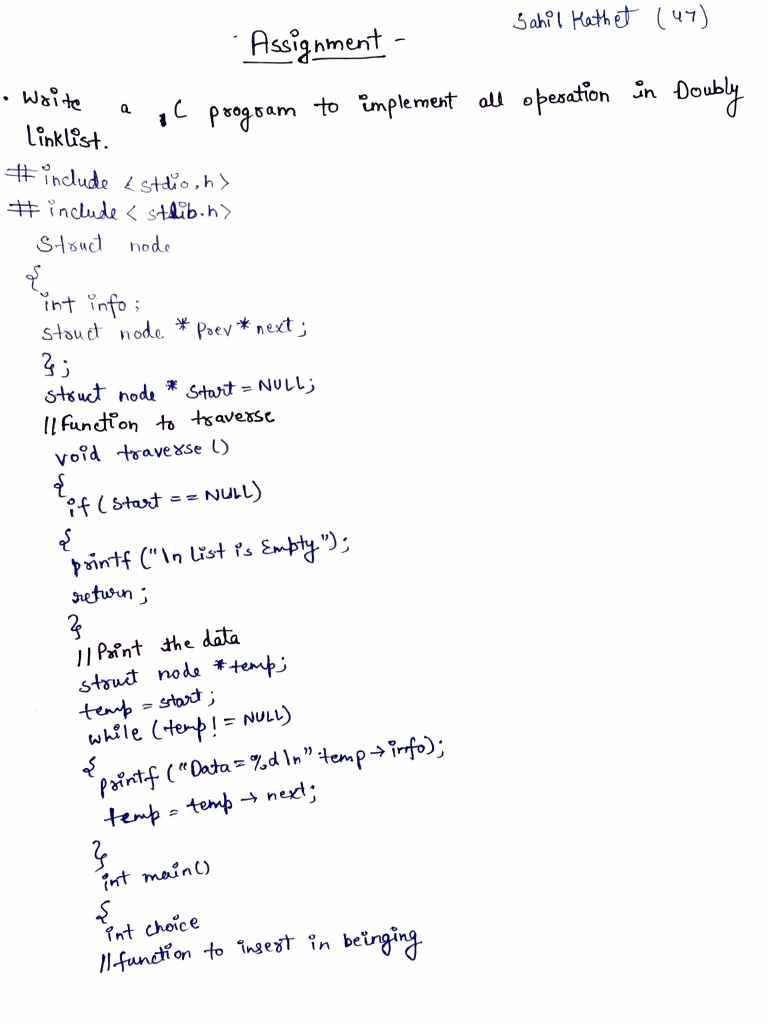 Sahil Kathet (47)
Assignment -
• Write a C program to implement all operation in Doubly
linklist.
# include <stdio.h>
# include < stlib.h>
Struct node
{
int info;
struct node * prev * next;
};
struct node * Start = NULL;
// Function to traverse
void traverse ()
{
if (Start == NULL)
{
printf ("\n List is Empty");
return;
}
// Print the data
struct node *temp;
temp = start;
while (temp! = NULL)
{
printf ("Data = %d \n" temp → info);
temp = temp → next;
}
int main()
{
int choice
// function to insert in beinging